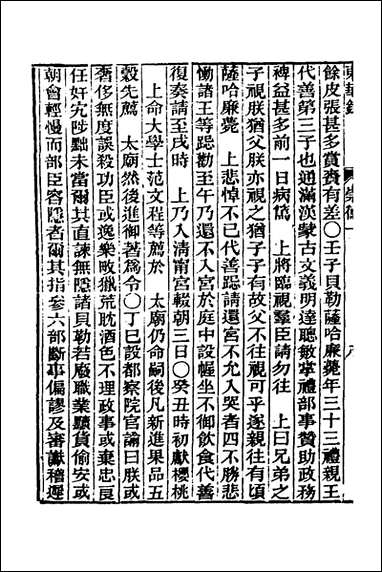 東華錄 崇德一 八
餘皮張甚多賞賚有差〇壬子貝勒薩哈廉薨年三十三禮親王
代善第三子也通滿漢蒙古文義明達聰敏掌禮部事贊助政務
裨益甚多前一日病篤 上將臨視羣臣請勿往 上曰兄弟之
子視朕猶父朕亦視之猶子子有故父不往視可乎遂親往有頃
薩哈廉薨 上悲悼不已代善跽請還宮不允入哭者四不勝悲
慟諸王等跽勸至午乃還不入宮於庭中設幄坐不御飲食代善
復奏請至戌時 上乃入清甯宮輟朝三日〇癸丑時初獻櫻桃
上命大學士范文程等薦於 太廟仍命嗣後凡新進果品五
穀先薦 太廟然後進御著為令〇丁巳設都察院官諭曰朕或
奢侈無度誤殺功臣或逸樂畋獵荒耽酒色不理政事或棄忠良
任奸宄陟黜未當爾其直諫無隱諸貝勒若廢職業黷貨偷安或
朝會輕慢而部臣容隱者爾其指參六部斷事偏謬及審讞稽遲